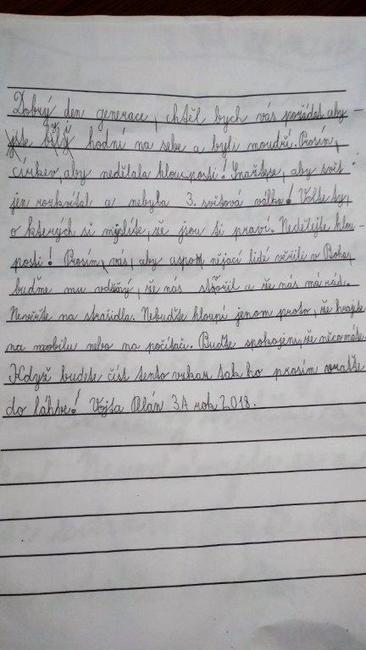 Dobrý den generace, chtěl bych vás požádat aby-
jste byly hodní na sebe a byli moudří. Prosím,
církev aby nedělala hlouposti. Snažte se, aby svět
jen vzkvétal a nebyla 3. světová válka! Volte ty,
o kterých si myslíte, že jsou ti praví. Nedělejte hlou-
posti! Prosím vás, aby aspoň nějací lidé věřili v Boha,
buďme mu vděčný, že nás stvořil a že nás má rád.
Nevěřte na strašidla. Nebuďte hlavní jenom proto, že hrajete
na mobilu nebo na počítači. Buďte spokojeni, že něco máte
Když budete číst tento vzkaz tak ho prosím vraťte
do láhve! Vojta 3.A rok 2018.